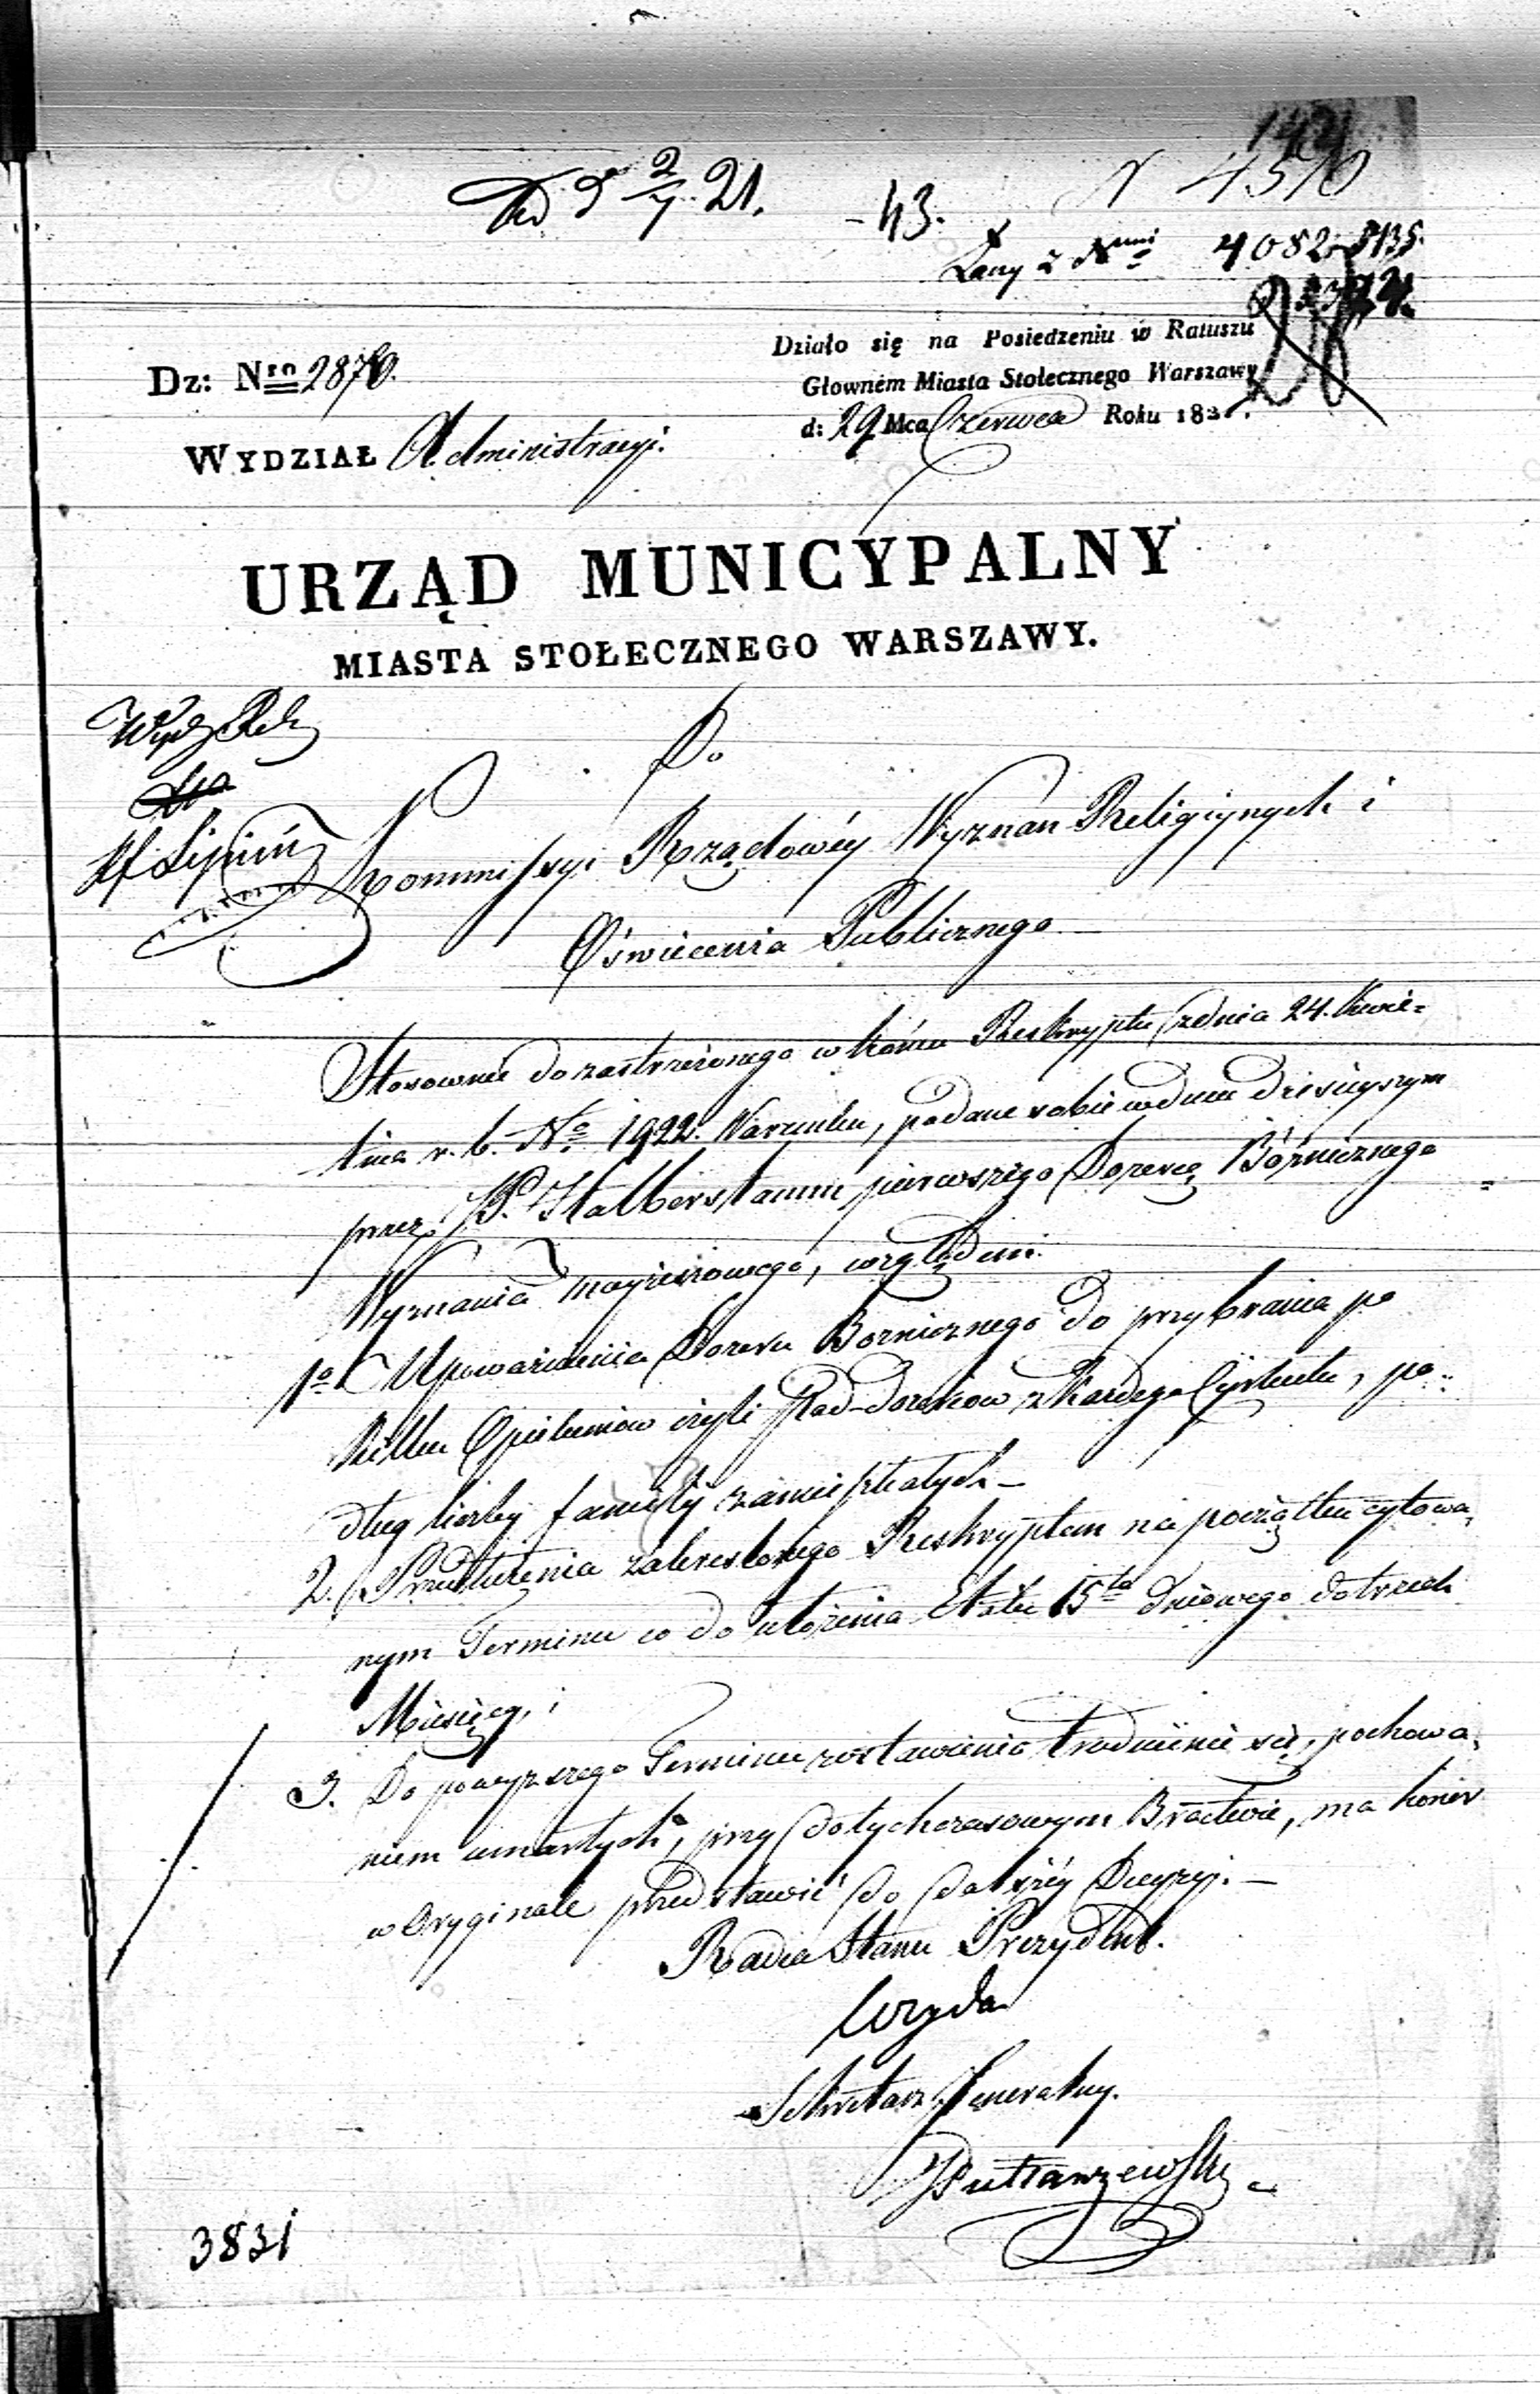 d 2/7 21.
- 43.
N 4510
Łączy z Nrmi 4082
Działo się na Posiedzeniu w Ratuszu
Dz: Nro 2870.
Głownem Miasta Stołecznego Warszawy
d: 29 Mca Czerwca Roku 182
WYDZIAŁ Administracyi.
URZĄD MUNICYPALNY
MIASTA STOŁECZNEGO WARSZAWY.
Do
Kommissyi Rządowéy Wyznan Religiynych i
Oświecenia Publicznego
Stosownie do zastrzeżonego w końcu Reskryptu z dnia 24. Kwie=
tnia r. b. No 1922. Warunku, podane sobie w dniu dzisieyszym
przez P. Halberstamm pierwszego Dozorcę Bóżnicznego
Wyznania moyżeszowego, względem
1o Upoważnienia Dozoru Boznicznego do przybrania po
kilku Opiekunów czyli Pod-dozorców z każdego Cyrkułu, po=
dług liczby familij zamieszkałych —
2. Przedłużenia zakreslonego Reskryptem na początku cytowa=
nym Terminu co do ułożenia Etatu 15to dniowego do trzech
Miesięcy, i
3. Do powyższego Terminu zostawienia trudnienie się pochowa=
niem umarłych, przy dotychczasowym Bractwie, ma honor
w Oryginale przedstawić do dalszéy Decyzyi. —
Radca Stanu Prezydent.
Woyda
Sekretarz Jeneralny.
3831